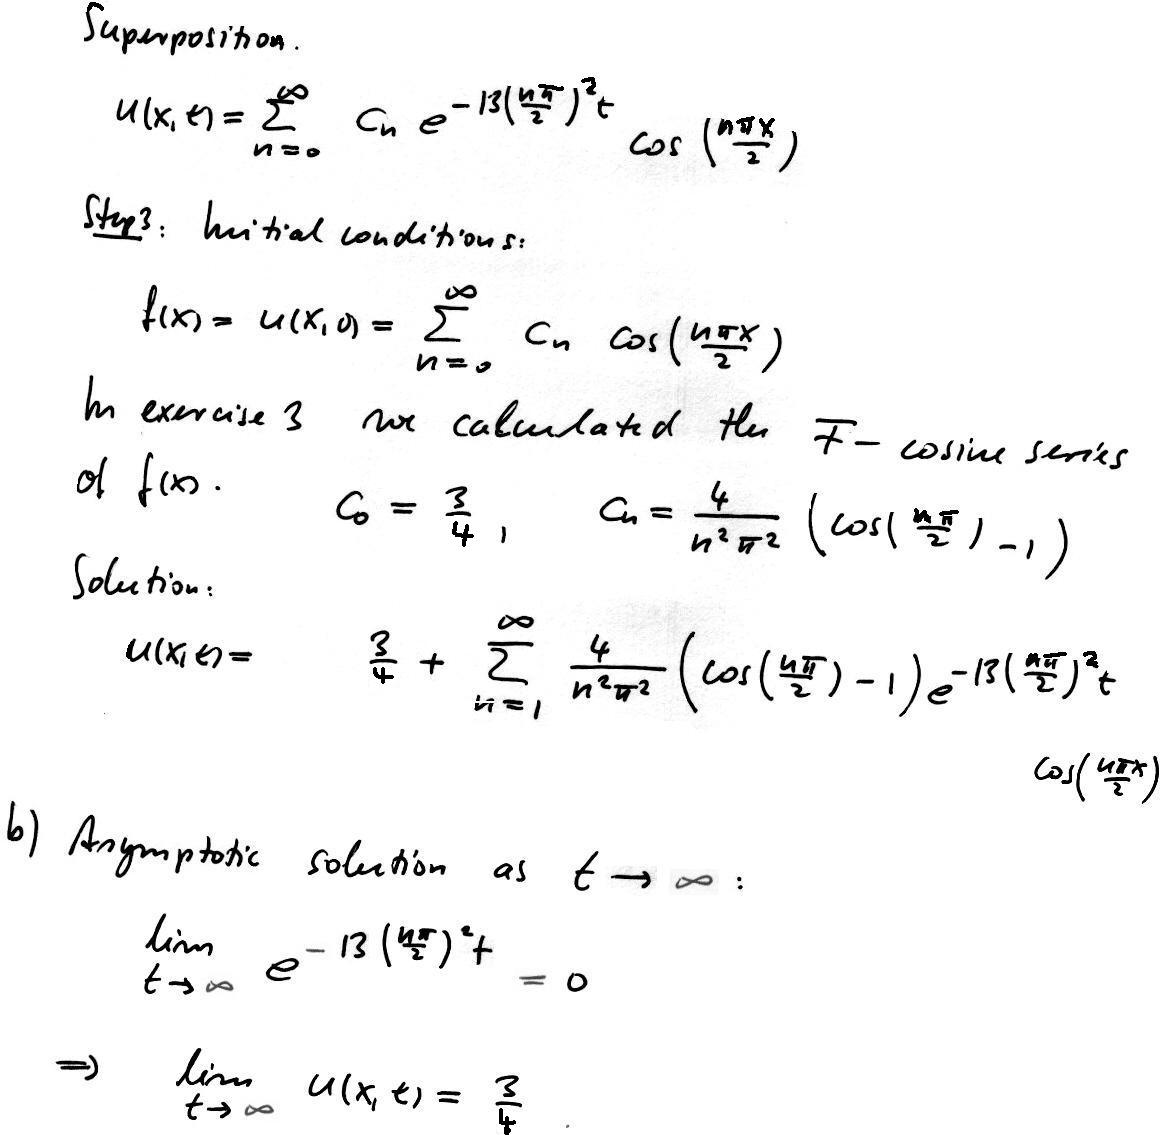 Superposition.
u(x,t) = ∑_{n=0}^{∞} C_n e^{-13(nπ/2)²t} cos(nπx/2)
Step3: Initial conditions:
f(x) = u(x,0) = ∑_{n=0}^{∞} C_n cos(nπx/2)
In exercise 3 we calculated the F-cosine series
of f(x). C_0 = 3/4, C_n = 4/(n²π²) (cos(nπ/2) - 1)
Solution:
u(x,t) = 3/4 + ∑_{n=1}^{∞} 4/(n²π²) (cos(nπ/2) - 1) e^{-13(nπ/2)²t}
cos(nπx/2)
b) Asymptotic solution as t → ∞ :
lim_{t→∞} e^{-13(nπ/2)²t} = 0
⇒ lim_{t→∞} u(x,t) = 3/4.